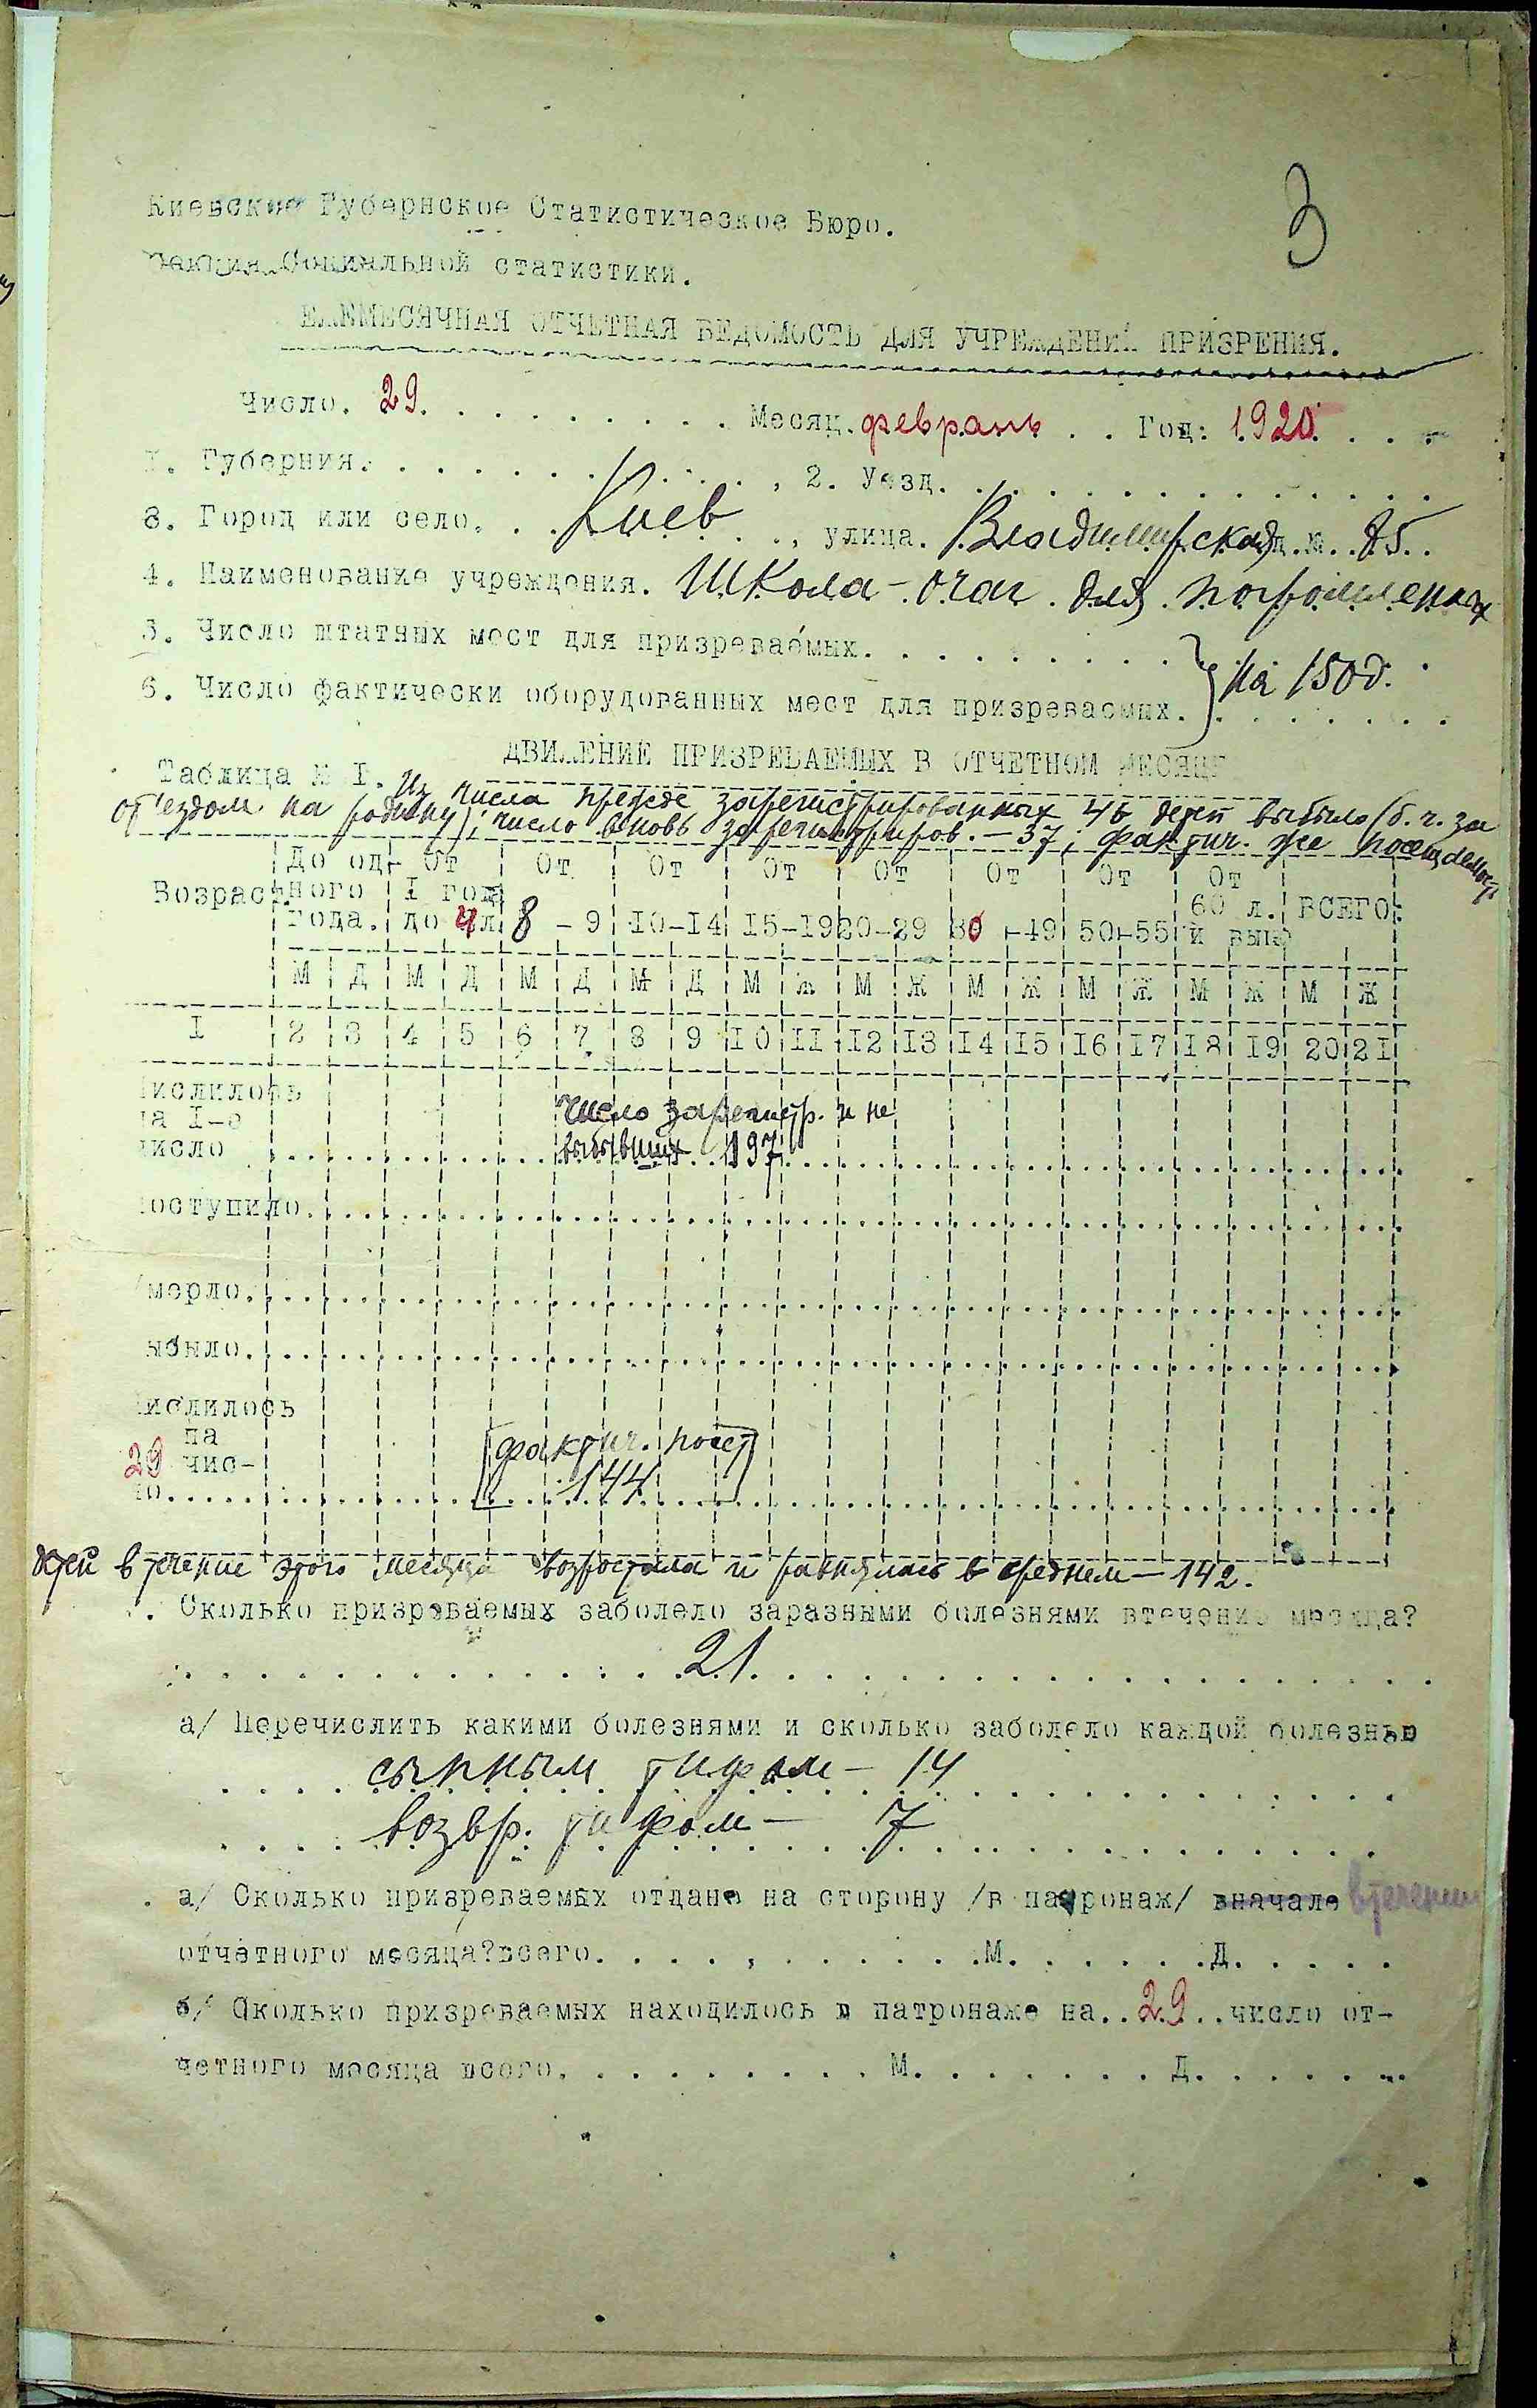 3
Киевское Губернское Статистическое Бюро.
Секция Социальной статистики.
ЕЖЕМЕСЯЧНАЯ ОТЧЕТНАЯ ВЕДОМОСТЬ ДЛЯ УЧРЕЖДЕНИЙ ПРИЗРЕНИЯ.
Число. 29. . . . . . . . . Месяц. февраль . . Год: 1920. . . .
1. Губерния. . . . . . . . . . . . , 2. Уезд. . . . . . . . . . . . . . .
3. Город или село. . . Киев . . , улица. Владимирская д. №. . 85. .
4. Наименование учреждения. Школа-очаг для погромленных
5. Число штатных мест для призреваемых. . . . . . . . . .
6. Число фактически оборудованных мест для призреваемых. } на 150 д.
ДВИЖЕНИЕ ПРИЗРЕВАЕМЫХ В ОТЧЕТНОМ МЕСЯЦЕ
Таблица № I. Из числа прежде зарегистрированных 46 детей выбыло (б. ч. за
от'ездом на родину); число вновь зарегистриров. – 37; фактич. же посещаемость
Возраст До од- От От От От От От От От
ного I год 60 л. ВСЕГО:
года. до 4 л. 8 - 9 10-14 15-19 20-29 30 -49 50-55 и выш
М Д М Д М Д М Д М Ж М Ж М Ж М Ж М Ж М Ж
I 2 3 4 5 6 7 8 9 10 11 12 13 14 15 16 17 18 19 20 21
числилось
на I-е число зарегистр. и не
число . . . . выбывших . . 197 . . . .
поступило. . . . .
умерло. . . . .
выбыло. . . . .
числилось
на фактич. посет
29 чис-
ло. . . . . 144 . . . .
детей в течение этого месяца возрастала и равнялась в среднем – 142.
. Сколько призреваемых заболело заразными болезнями втечение месяца?
. . . . . . . . . . . . 21. . . . . . . . . . . . . .
а/ Перечислить какими болезнями и сколько заболело каждой болезнью
. . . . сыпным тифом – 14 . . . . . . .
. . . . возвр. тифом – 7 . . . . . . .
. а/ Сколько призреваемых отдано на сторону /в патронаж/ вначале втечении
отчетного месяца?всего. . . . , . . . . . .М. . . . . . .Д. . . . .
б/ Сколько призреваемых находилось в патронаже на. .29. .число от-
четного месяца всего. . . . . . . . . . М. . . . . . . .Д. . . . . . .